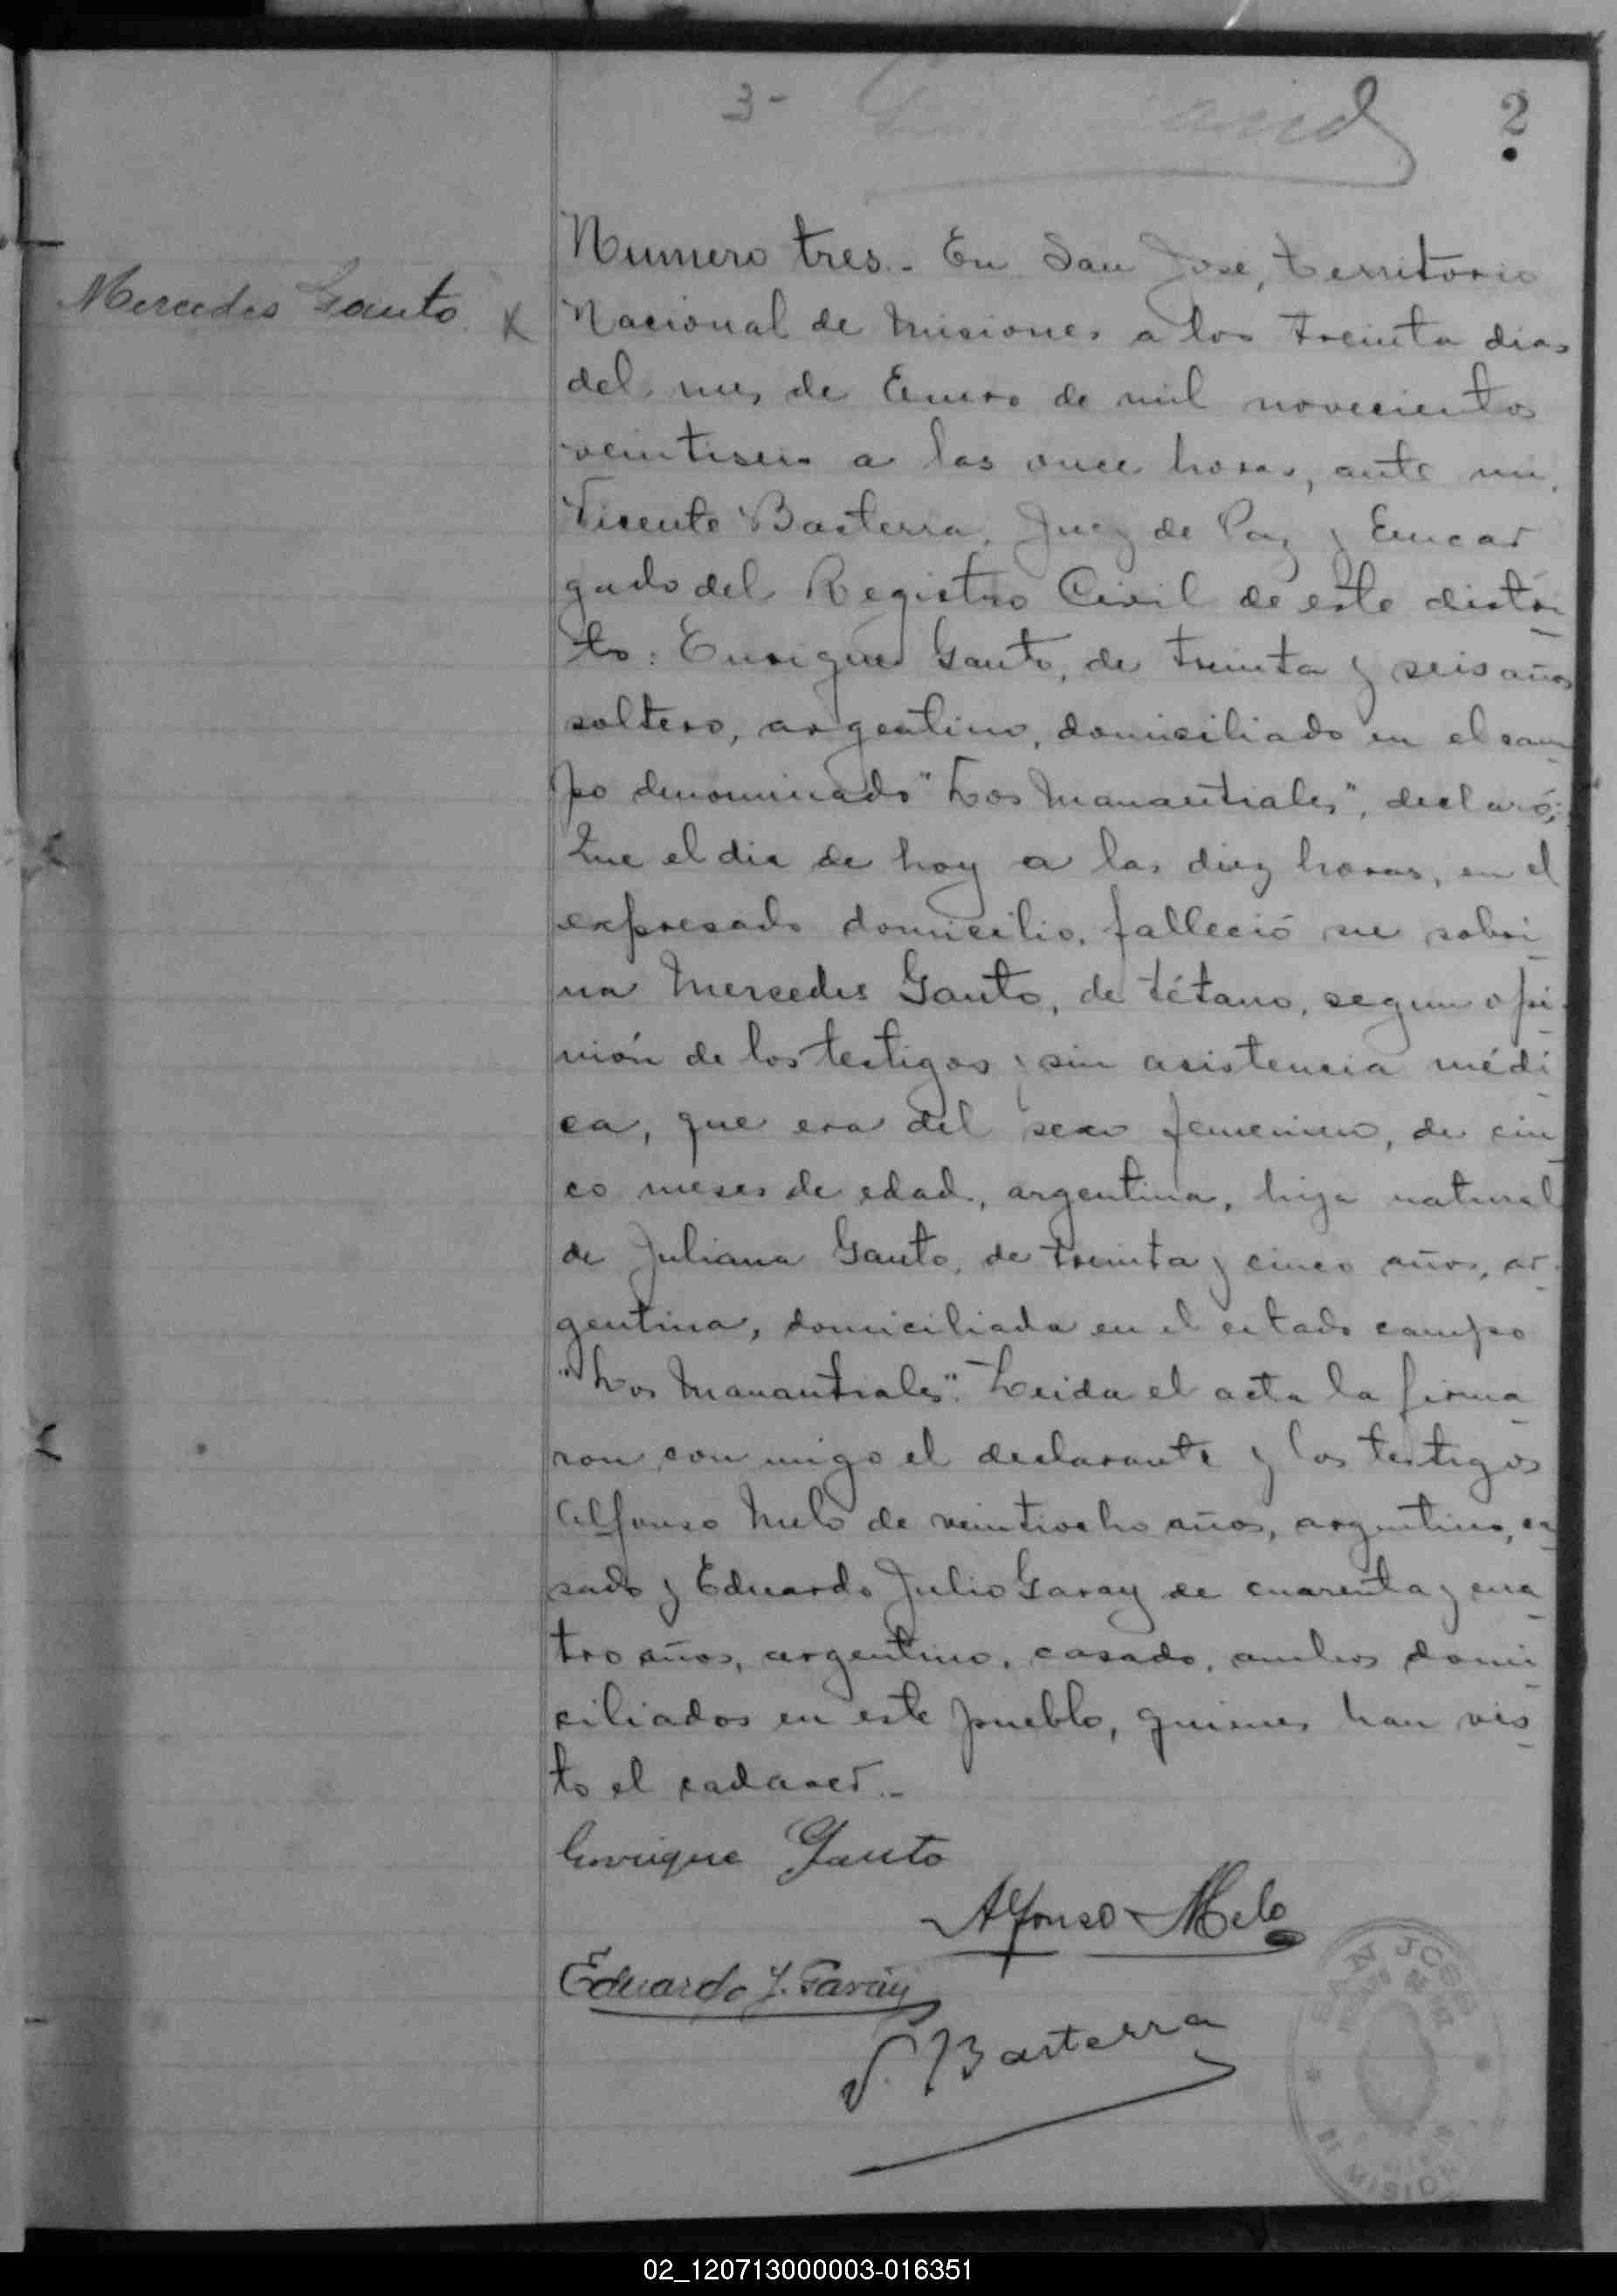 3-
2
Mercedes Gauto
Numero tres.- En San José, Territorio
Nacional de Misiones a los treinta dias
del mes de Enero de mil novecientos
veintiseis a las once horas, ante mi,
Vicente Basterra, Juez de Paz y Encar
gado del Registro Civil de este distri
to: Enrique Gauto, de treinta y seis años
soltero, argentino, domiciliado en el cam
po denominado "Los Manantiales", declaró:
Que el dia de hoy a las diez horas, en el
expresado domicilio, falleció su sobri
na Mercedes Gauto, de tétano, segun opi
nión de los testigos y sin asistencia médi
ca, que era del sexo femenino, de cin
co meses de edad, argentina, hija natural
de Juliana Gauto, de treinta y cinco años, ar
gentina, domiciliada en el citado campo
"Los Manantiales".- Leida el acta la firma
ron con migo el declarante y los testigos
Alfonso Melo de veintiocho años, argentino, ca
sado y Eduardo Julio Garay de cuarenta y cua
tro años, argentino, casado, ambos domi
ciliados en este pueblo, quienes han vis
to el cadaver.-
Enrique Gauto
Alfonso Melo
Eduardo J. Garay
V. Basterra
SAN JOSE
DE MISION
02_120713000003-016351